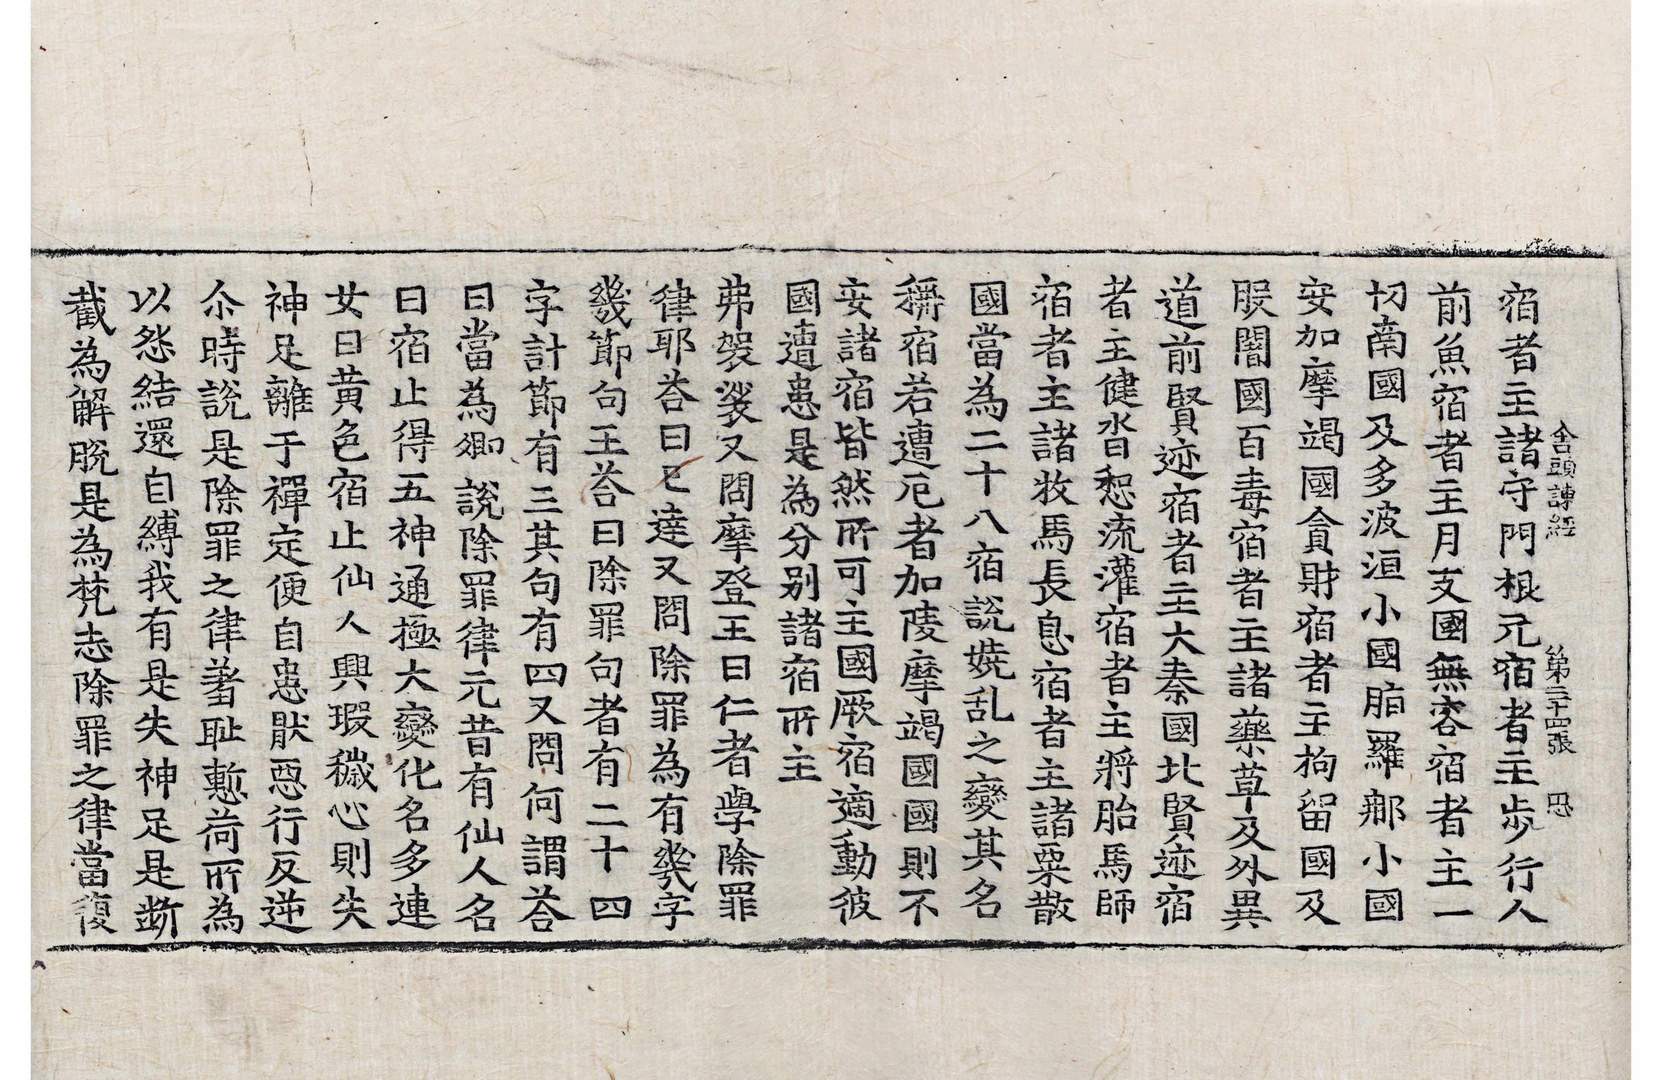 舍頭諫經　第三十四張　恐
宿者主諸守門根元宿者主步行人
前魚宿者主月支國無容宿者主一
切南國及多波洹小國脂羅鄉小國
安加摩竭國貪財宿者主拘留國及
般闍國百毒宿者主諸藥草及外異
道前賢迹宿者主大秦國北賢迹宿
者主健沓惒流灌宿者主將胎馬師
宿者主諸牧馬長息宿者主諸粟散
國當為二十八宿說嬈乱之變其名
稱宿若遭厄者加陵摩竭國國則不
安諸宿皆然所可主國厥宿適動彼
國遭患是為分别諸宿所主
弗袈裟又問摩登王曰仁者學除罪
律耶荅曰已達又問除罪為有幾字
幾節句王荅曰除罪句者有二十四
字計節有三其句有四又問何謂荅
曰當為卿說除罪律元昔有仙人名
曰宿止得五神通極大變化名多連
女曰黃色宿止仙人興瑕穢心則失
神足離于禪定便自患猒惡行反逆
尒時說是除罪之律著耻慙荷所為
以怨結還自縛我有是失神足是斷
截為解脫是為梵志除罪之律當復